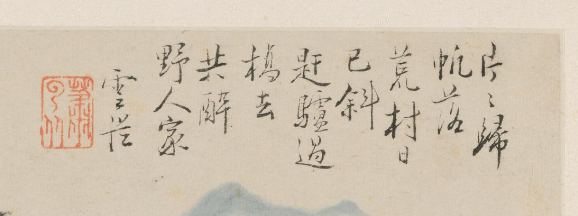 片〻歸
帆落
荒村日
已斜
赶驢過
橋去
共醉
野人家
雲從